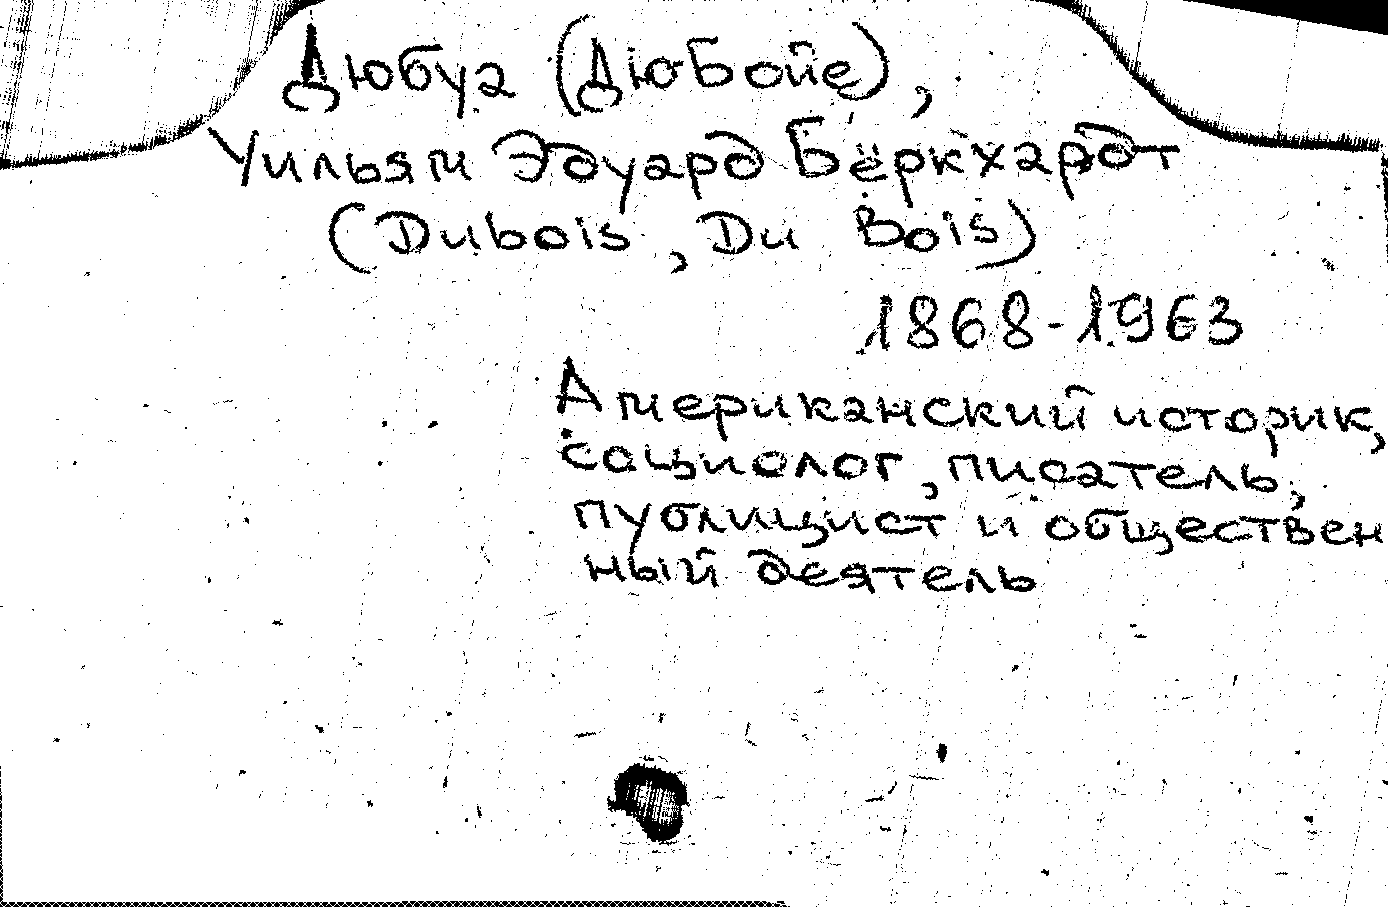 Дюбуа (Дю Бойс),
Уильям Эдуард Бёркхардт
(Dubois, Du Bois)
1868-1963
Американский историк,
социолог, писатель,
публицист и обществен
ный деятель